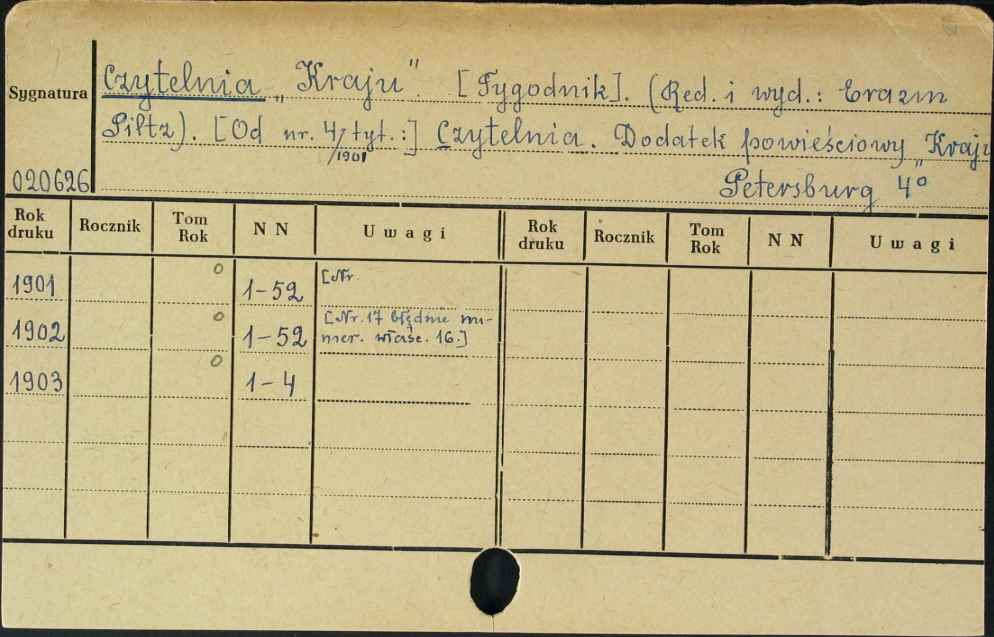 Czytelnia „Kraju". [Tygodnik]. (Red. i wyd.: Erazm
Sygnatura
Piltz). [Od nr. 4/1901 tyt.:] Czytelnia. Dodatek powieściowy „Kraju
020626
Petersburg 4°
Rok druku Rocznik Tom Rok N N Uwagi Rok druku Rocznik Tom Rok N N Uwagi
1901 o 1-52 [Nr.
1902 o 1-52 [Nr. 17 błędnie nu-
mer. właśc. 16.]
1903 o 1-4